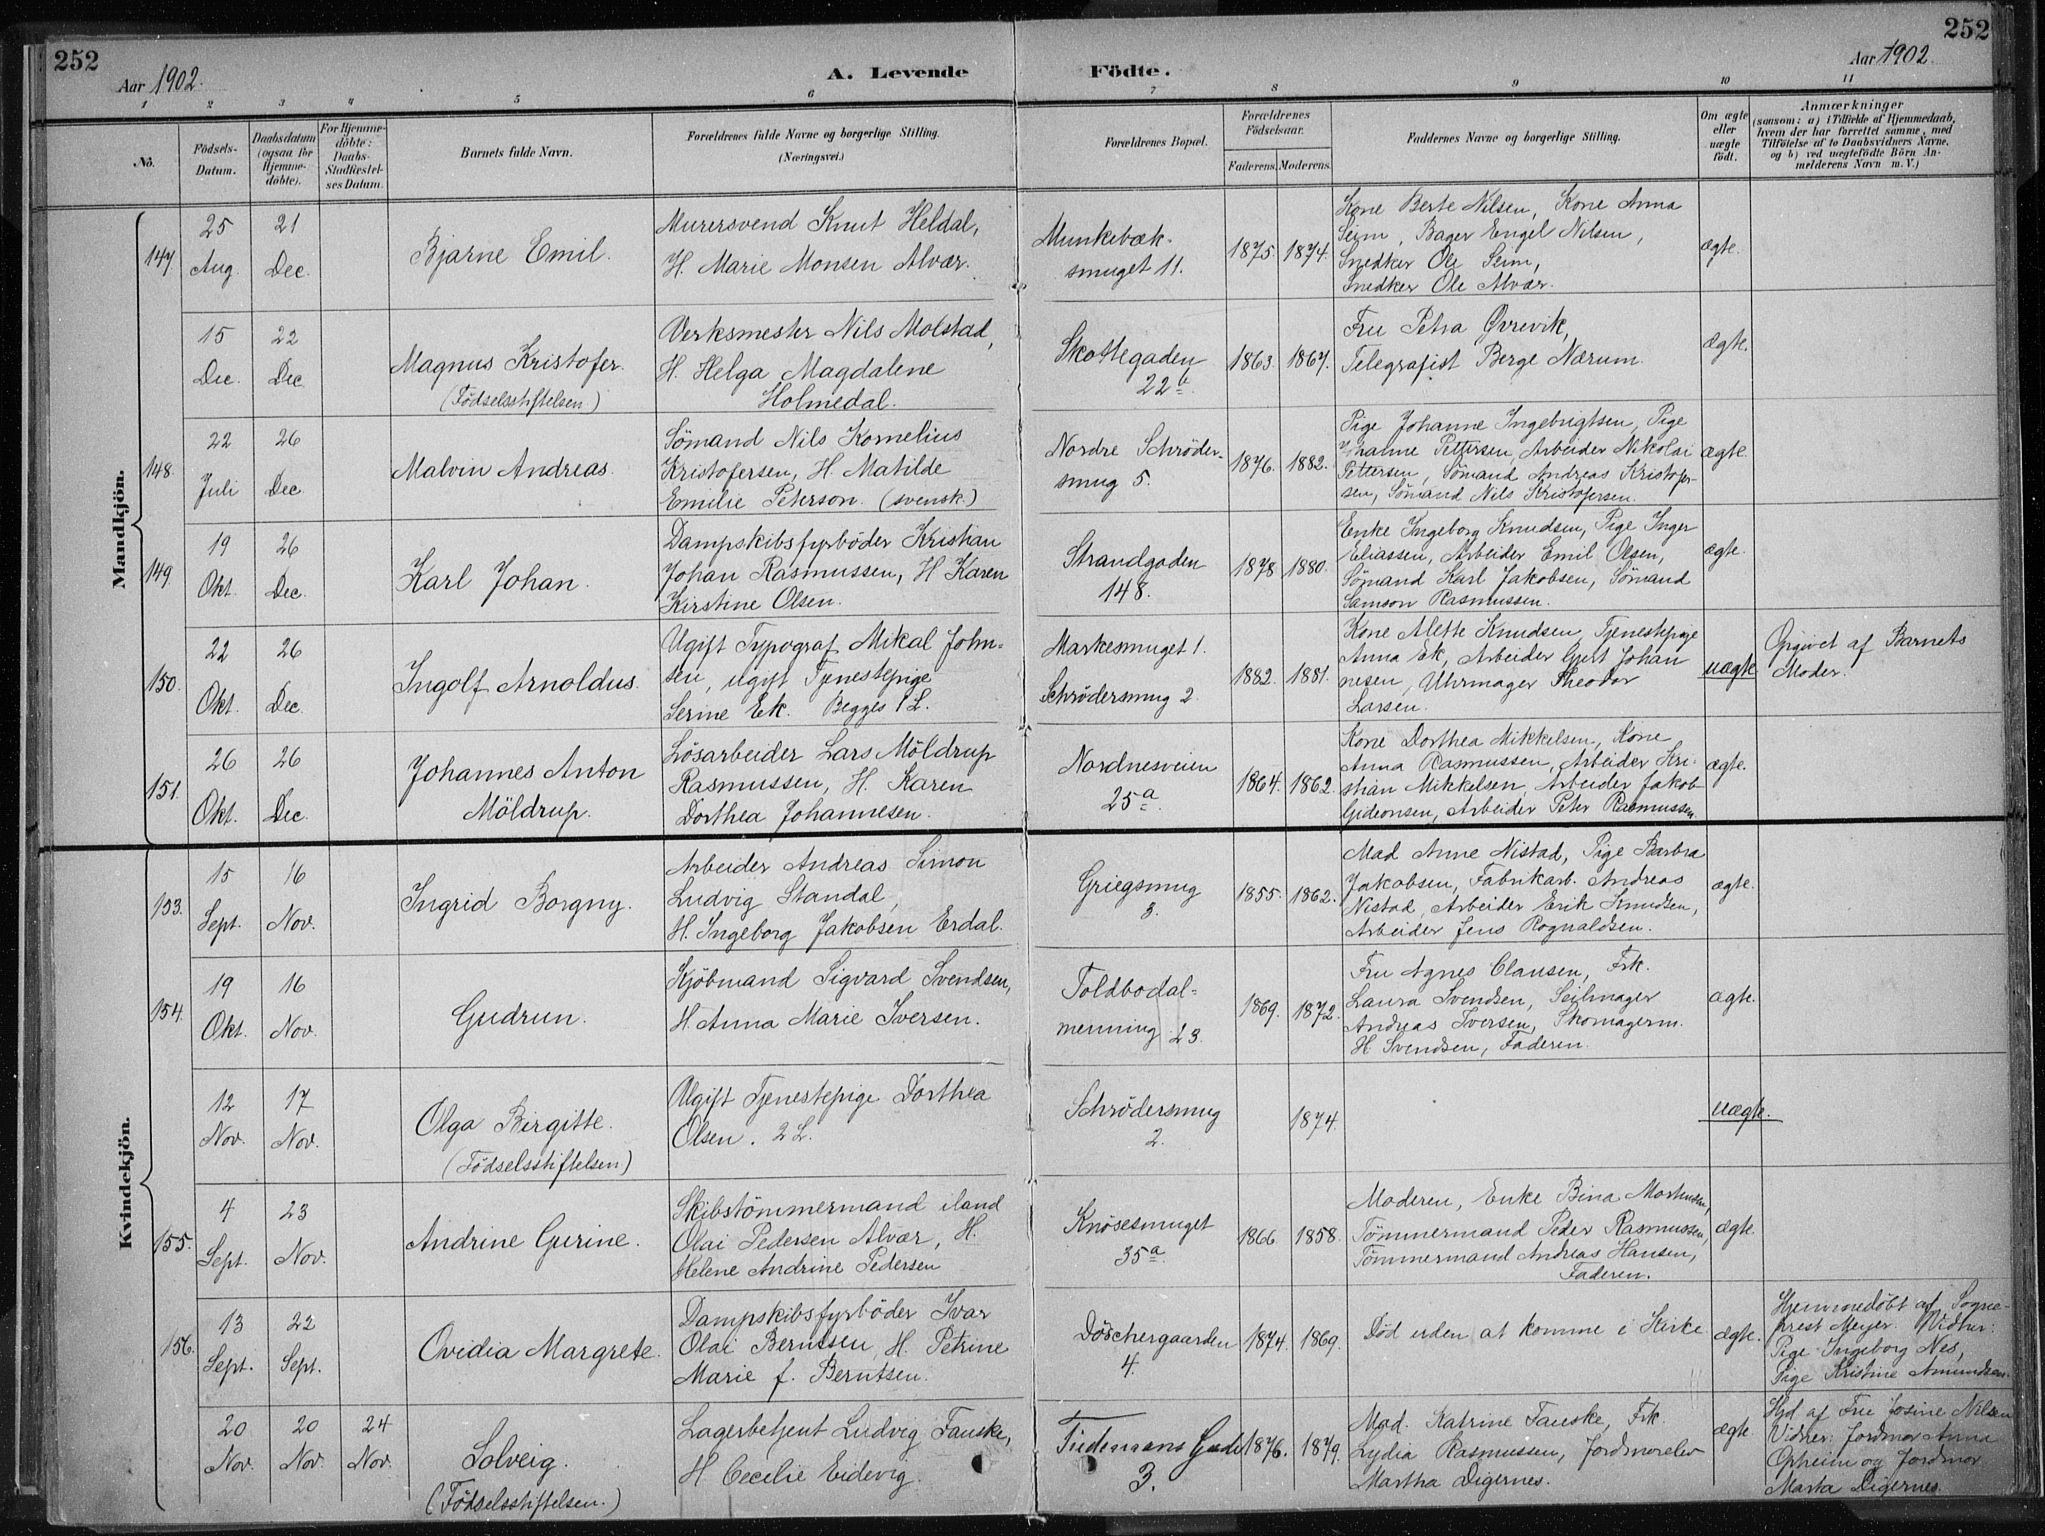 252
252
Aar 1902.
A. Levende
Födte.
Aar 1902.
1
2
3
4
5
6
7
8
9
10
11
No.
Födsels-
Datum.
Daabsdatum
(ogsaa for
Hjemme-
döbte).
For Hjemme-
döbte:
Daabs-
Stadfæstel-
ses Datum.
Barnets fulde Navn.
Forældrenes fulde Navne og borgerlige Stilling.
(Næringsvei.)
Forældrenes Bopæl.
Forældrenes
Födselsaar.
Faderens.
Moderens.
Faddernes Navne og borgerlige Stilling.
Om ægte
eller
uægte
födt.
Anmærkninger
(saasom: a) i Tilfælde af Hjemmedaab,
hvem der har forrettet samme, med
Tilföielse af to Daabsvidners Navne,
og b) ved uægtefödte Börn An-
melderens Navn m. V.)
Mandkjön.
147.
25
Aug.
21
Dec.
Bjarne Emil.
Murersvend Knut Heldal,
H. Marie Monsen Alvær.
Munkebæk-
smuget 11.
1875.
1874.
Kone Berte Nilsen, Kone Anna
Seim, Bager Engel Nilsen,
Snedker Ole Seim,
Snedker Ole Alvær.
ægte.
15
Dec.
22
Dec.
Magnus Kristofer.
(Födselsstiftelsen)
Verksmester Nils Molstad,
H. Helga Magdalene
Holmedal.
Skottegaden
22 b
1863.
1867.
Fru Petra Øvrevik,
Telegrafist Berge Nærum.
Ægte.
148.
22
Juli
26
Dec.
Malvin Andreas.
Sömand Nils Kornelius
Kristofersen, H. Matilde
Emilie Peterson. (svensk)
Nordre Schröder-
smug 5.
1876.
1882.
Pige Johanne Ingebrigtsen, Pige
Johanne Pettersen, Arbeider Nikolai
Pettersen, Sömand Andreas Kristofer-
sen, Sömand Nils Kristofersen.
ægte.
149.
19
Okt.
26
Dec.
Karl Johan.
Dampskibsfyrböder Kristian
Johan Rasmussen, H Karen
Kirstine Olsen.
Strandgaden
148.
1878
1880.
Enke Ingeborg Knudsen, Pige Inger
Eliassen, Arbeider Emil Olsen,
Sömand Karl Jakobsen, Sömand
Samson Rasmussen.
ægte.
150.
22
Okt.
26
Dec.
Ingolf Arnoldus.
Ugift Typograf Mikal John-
sen, ugift Tjenestepige
Serine Ek. Begges 1 L.
Markesmuget 1.
Schrödersmug 2.
1882.
1881.
Kone Alette Knudsen, Tjenestepige
Anna Ek, Arbeider Gjert Johan
nesen, Uhrmager Theodor
Larsen.
uægte
Opgivet af Barnets
Moder.
151.
26
Okt.
26
Dec.
Johannes Anton
Möldrup.
Lösarbeider Lars Möldrup
Rasmussen, H. Karen
Dorthea Johannesen.
Nordnesveien
25 a.
1864.
1862.
Kone Dorthea Mikkelsen, Kone
Anna Rasmussen, Arbeider Kri-
stian Mikkelsen, Arbeider Jakob
Gideonsen, Arbeider Peter Rasmussen.
ægte.
Kvindekjön.
153.
15
Sept.
16
Nov.
Ingrid Borgny.
Arbeider Andreas Simon
Ludvig Standal,
H. Ingeborg Jakobsen Erdal.
Griegsmug
3.
1855.
1862.
Mad Anne Nistad, Pige Barbra
Jakobsen, Fabrikarb. Andreas
Nistad, Arbeider Erik Knudsen,
Arbeider Jens Rognaldsen.
ægte.
154.
19
Okt.
16
Nov.
Gudrun.
Kjöbmand Sigvard Svendsen,
H Anna Marie Iversen.
Toldbodal-
menning 23.
1869.
1872.
Fru Agnes Clausen, Frk.
Laura Svendsen, Seilmager
Andreas Iversen, Skomagerm.
H. Svendsen, Faderen.
ægte.
12
Nov.
17
Nov.
Olga Birgitte.
(Födselsstiftelsen)
Ugift Tjenestepige Dorthea
Olsen. 2 L.
Schrödersmug
2.
1874.
uægte.
155.
4
Sept.
23
Nov.
Andrine Gurine.
Skibstömmermand iland
Olai Pedersen Alvær, H.
Helene Andrine Pedersen
Knösesmuget
35 a.
1866
1858.
Moderen, Enke Bina Mortensen,
Tömmermand Peder Rasmussen,
Tömmermand Andreas Hansen,
Faderen.
ægte.
156.
13
Sept.
22
Sept.
Ovidia Margrete.
Dampskibsfyrböder Ivar
Olai Berntsen, H. Petrine
Marie f. Berntsen.
Döschergaarden
4.
1874.
1869.
Död uden at komme i Kirke
ægte.
Hjemmedöbt af Sogne-
prest Meyer. Vidner:
Pige Ingeborg Nes,
Pige Kristine Amundsen.
20
Nov.
20
Nov.
24
Nov.
Solveig.
(Födselsstiftelsen.)
Lagerbetjent Ludvig Fauske,
H Cecilie Eidevig.
Tidemans Gade
3.
1876.
1879.
Mad. Katrine Fauske, Frk.
Lydia Rasmussen, Jordmorelev
Martha Digernes.
ægte
Hjd af Fru Josine Nilsen
Vidner: Jordmor Anna
Opheim og Jordmor
Marta Digernes.